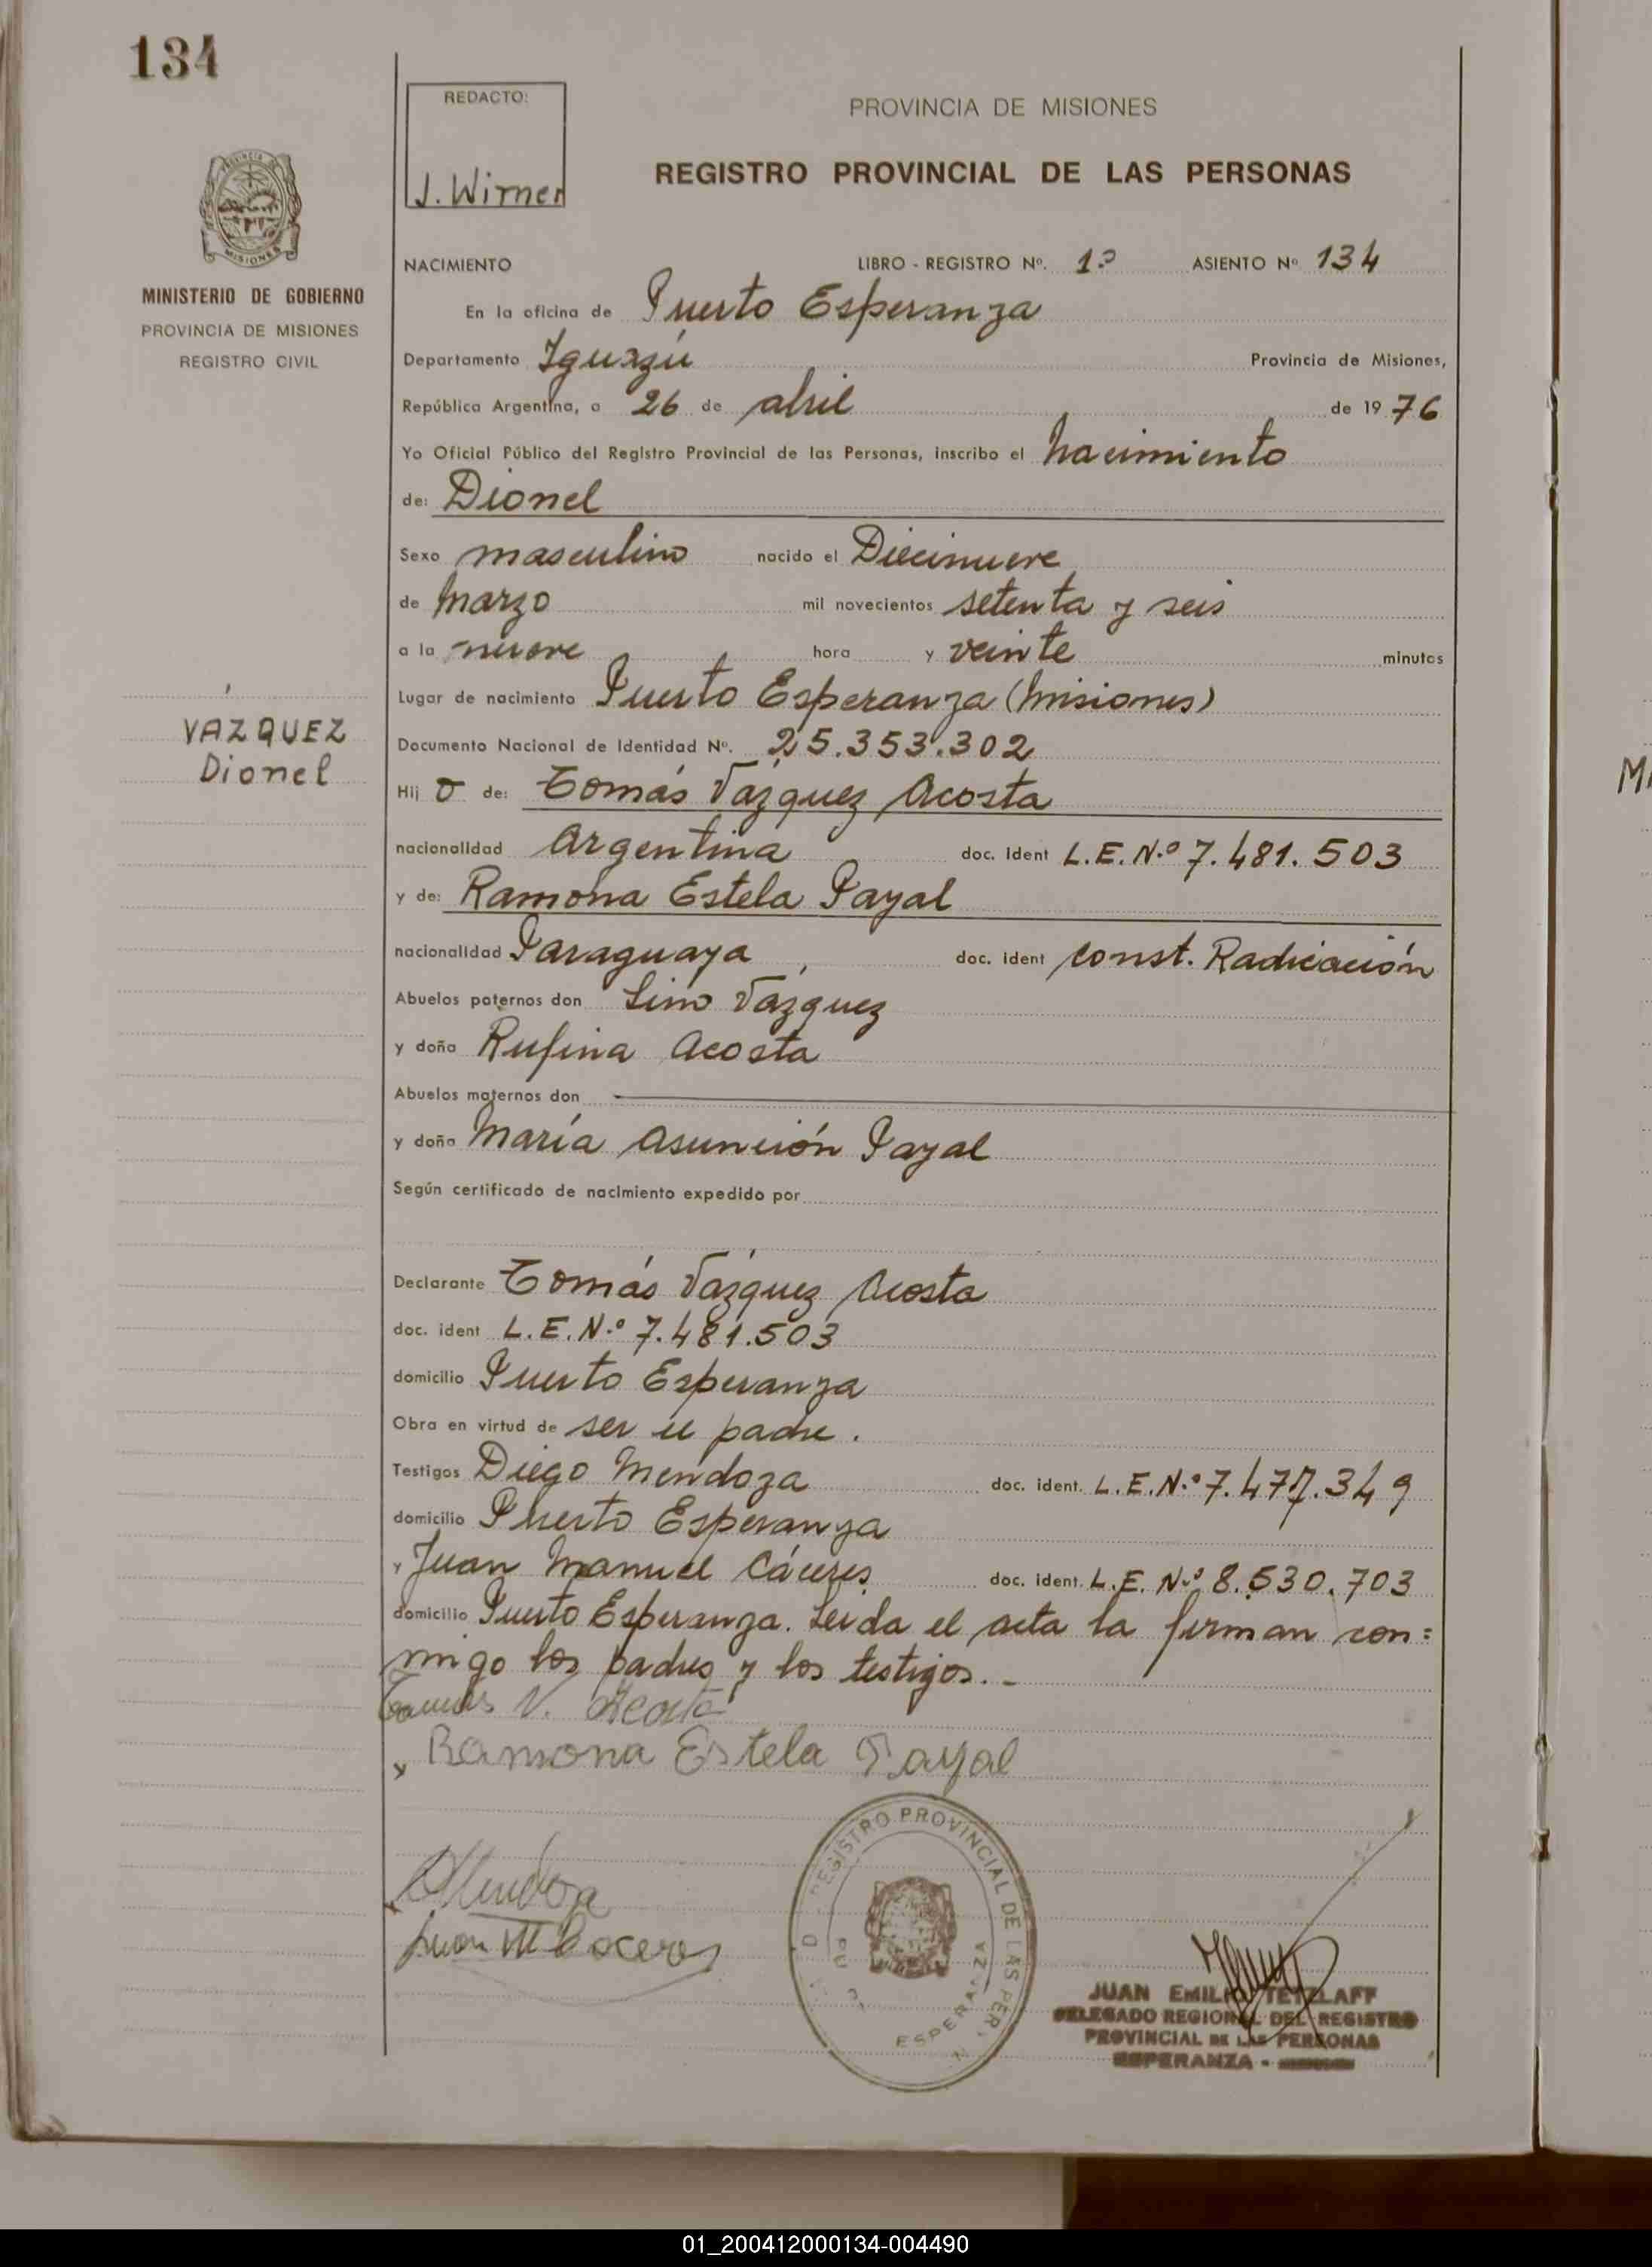 134
REDACTO:
J. Wirner
PROVINCIA DE MISIONES
REGISTRO PROVINCIAL DE LAS PERSONAS
MISIONES
MINISTERIO DE GOBIERNO
PROVINCIA DE MISIONES
REGISTRO CIVIL
NACIMIENTO LIBRO - REGISTRO Nº. 1º ASIENTO Nº 134
En la oficina de Puerto Esperanza
Departamento Iguazú Provincia de Misiones,
República Argentina, a 26 de abril de 1976
Yo Oficial Público del Registro Provincial de las Personas, inscribo el nacimiento
de: Dionel
Sexo masculino nacido el Diecinueve
de marzo mil novecientos setenta y seis
a la nueve hora y veinte minutos
Lugar de nacimiento Puerto Esperanza (Misiones)
VAZQUEZ
Dionel
Documento Nacional de Identidad Nº. 25.353.302
Hij o de: Tomás Vázquez Acosta
nacionalidad Argentina doc. ident L.E.N.º 7.481.503
y de: Ramona Estela Payal
nacionalidad Paraguaya, doc. ident const. Radicación
Abuelos paternos don Lino Vázquez
y doña Rufina Acosta
Abuelos maternos don
y doña María Asunción Payal
Según certificado de nacimiento expedido por
Declarante Tomás Vázquez Acosta
doc. ident L.E.N.º 7.481.503
domicilio Puerto Esperanza
Obra en virtud de ser el padre.
Testigos Diego Mendoza doc. ident. L.E.N.º 7.477.349
domicilio Puerto Esperanza
y Juan Manuel Cáceres doc. ident. L.E. N.º 8.530.703
domicilio Puerto Esperanza. Leida el acta la firman con=
migo los padres y los testigos.-
Tomas V. Acosta
Ramona Estela Payal
Mendoza
Juan M Caceres
REGISTRO PROVINCIAL DE LAS PER.
ESPERANZA
JUAN EMILIO TETZLAFF
DELEGADO REGIONAL DEL REGISTRO
PROVINCIAL DE LAS PERSONAS
ESPERANZA -
01_200412000134-004490